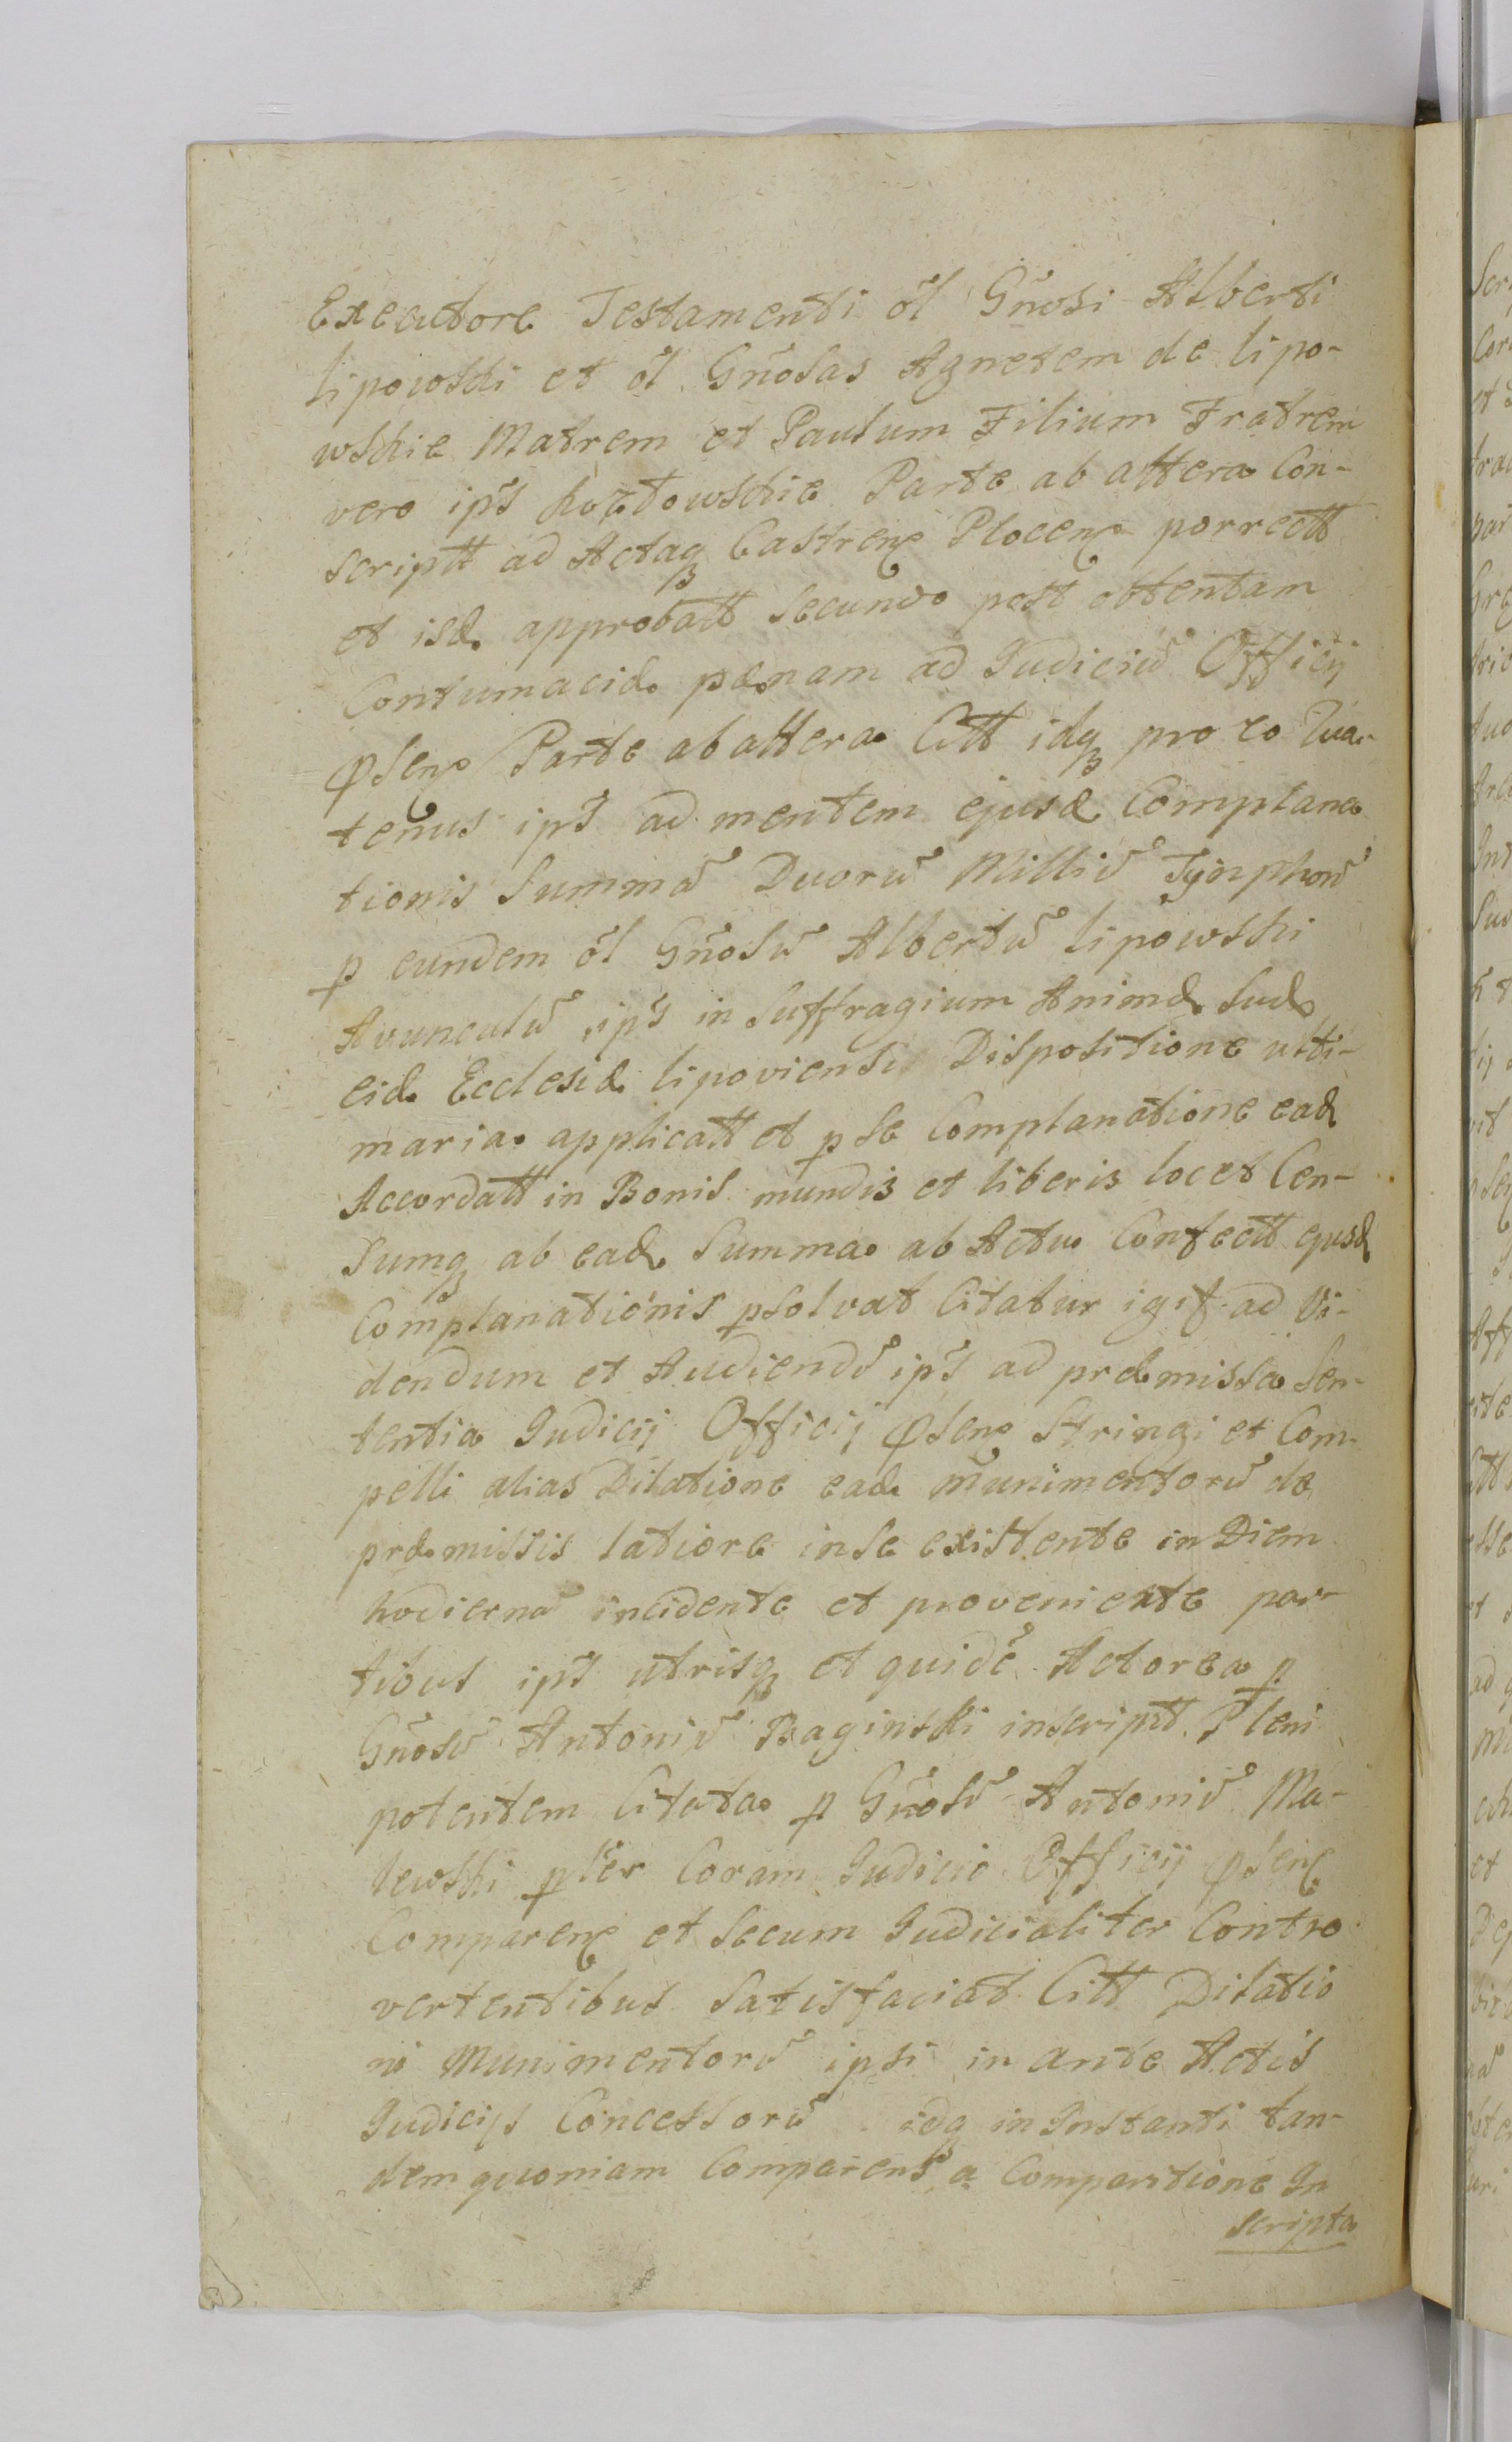 Executore Testamenti ol̃ Gñosi Alberti
lipowski et ol̃ Gñosas Agnetem de lipo-
wskie Matrem et Paulum Filium Fratrem
vero ips̃ Kozłowskie Parte ab altera Con-
scriptt ad Actaq₃ Castren Plocen porrectt
et isd. approbatt secundo post obtentam
Contumaciæ pænam ad Judiciũ Officij
Pñsen Parte ab altera Citt idq₃ pro eo Qua-
tenus ips̃ ad mentem ejusd Complana
tionis Summã Duorũ Milliũ Tynphorũ
p eundem ol̃ Gñosũ Albertũ lipowski
Avunculũ ips̃ in Suffragium Animæ Suæ
eid. Ecclesiæ lipoviensi Dispositione ulti-
maria applicatt et p se Complanatione ead
Accordatt in Bonis mundis et liberis locet Cen-
sumq₃ ab ead. Summa ab Actu Confectt ejusd
Complanationis psolvat Citatur igit ad Vi-
dendum et Audiendũ ips̃ ad præmissa Sen-
tentia Judicij Officij Pñsen Stringi et Com-
pelli alias Dilatione ead. munimentorũ de
præmissis latiore in se existente in Diem
hodiernã incidente et proveniente par-
tibus ips̃ utrisq₃ et quidẽ Actorea p
Gñosũ Antoniũ Baginski inscript Pleni
potentem Citata p Gñosũ Antoniũ Ma-
lewski plẽr Coram Judicio Officij Pñsen
Comparen et Secum Judicialiter Contro
vertentibus Satisfaciat Citt Dilatio
ni Munimentorũ ipsi in ante Actis
Judicijs Concessorũ idq₃ in Instanti tan-
dem quoniam Comparens a Comparitione In
scripta